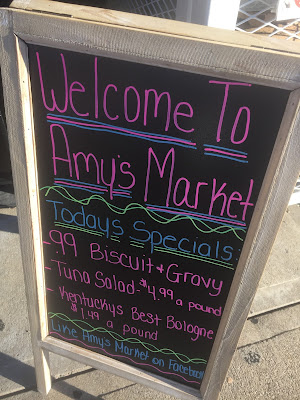 Welcome To
Amy's Market
Todays Specials:
-.99 Biscuit & Gravy
-Tuna Salad-$4.99 a pound
-Kentuckys Best Bologne
$1.49 a pound
Like Amy's Market on Facebook